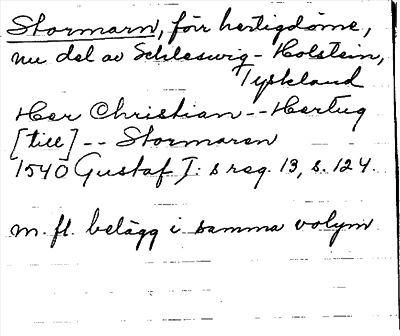 Stormarn, förr hertigdöme,
nu del av Schleswig-Holstein,
Tyskland
Her Christian -- Hertug
[till] -- Stormaren
1540 Gustaf I:s reg. 13, s. 124.
m. fl. belägg i samma volym